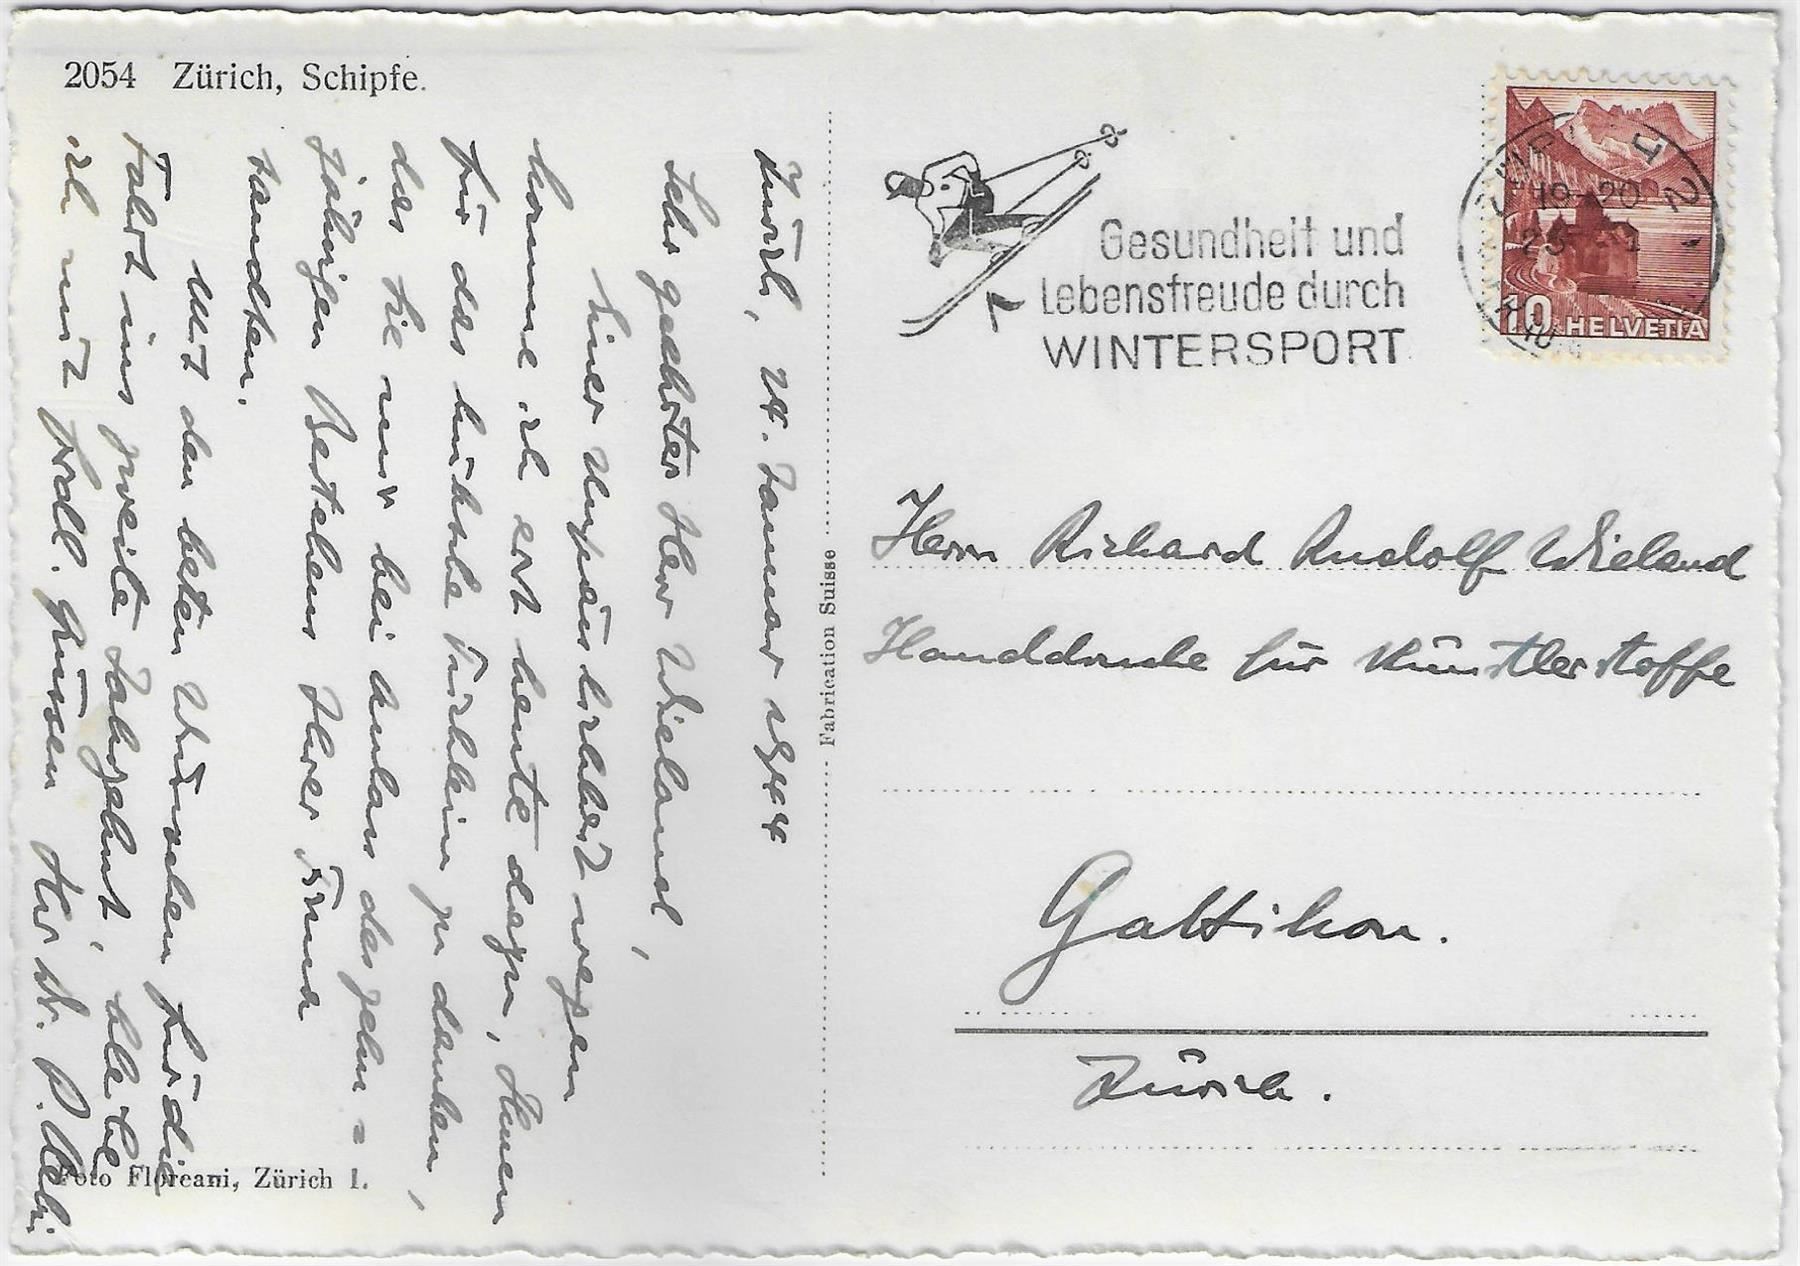 2054 Zürich, Schipfe.
Zürich, 24. Januar 1944
Sehr geehrter Herr Wieland,
Einer Unpässlichkeit wegen
komme ich erst heute dazu, Ihnen
für das hübsche Tüchlein zu danken,
das Sie mir bei Anlass des zehn =
jährigen Bestehens Ihrer Firma
sandten.
Mit den besten Wünschen für die
Fahrt ins zweite Jahrzehnt, bleibe
ich mit frdl. Grüssen Ihr Dr. P.
Foto Floreani, Zürich 1.
Fabrication Suisse
Gesundheit und
Lebensfreude durch
WINTERSPORT
19-20
25
10 HELVETIA
Herrn Richard Rudolf Wieland
Handdrucke für Künstlerstoffe
Gattikon.
Zürich.